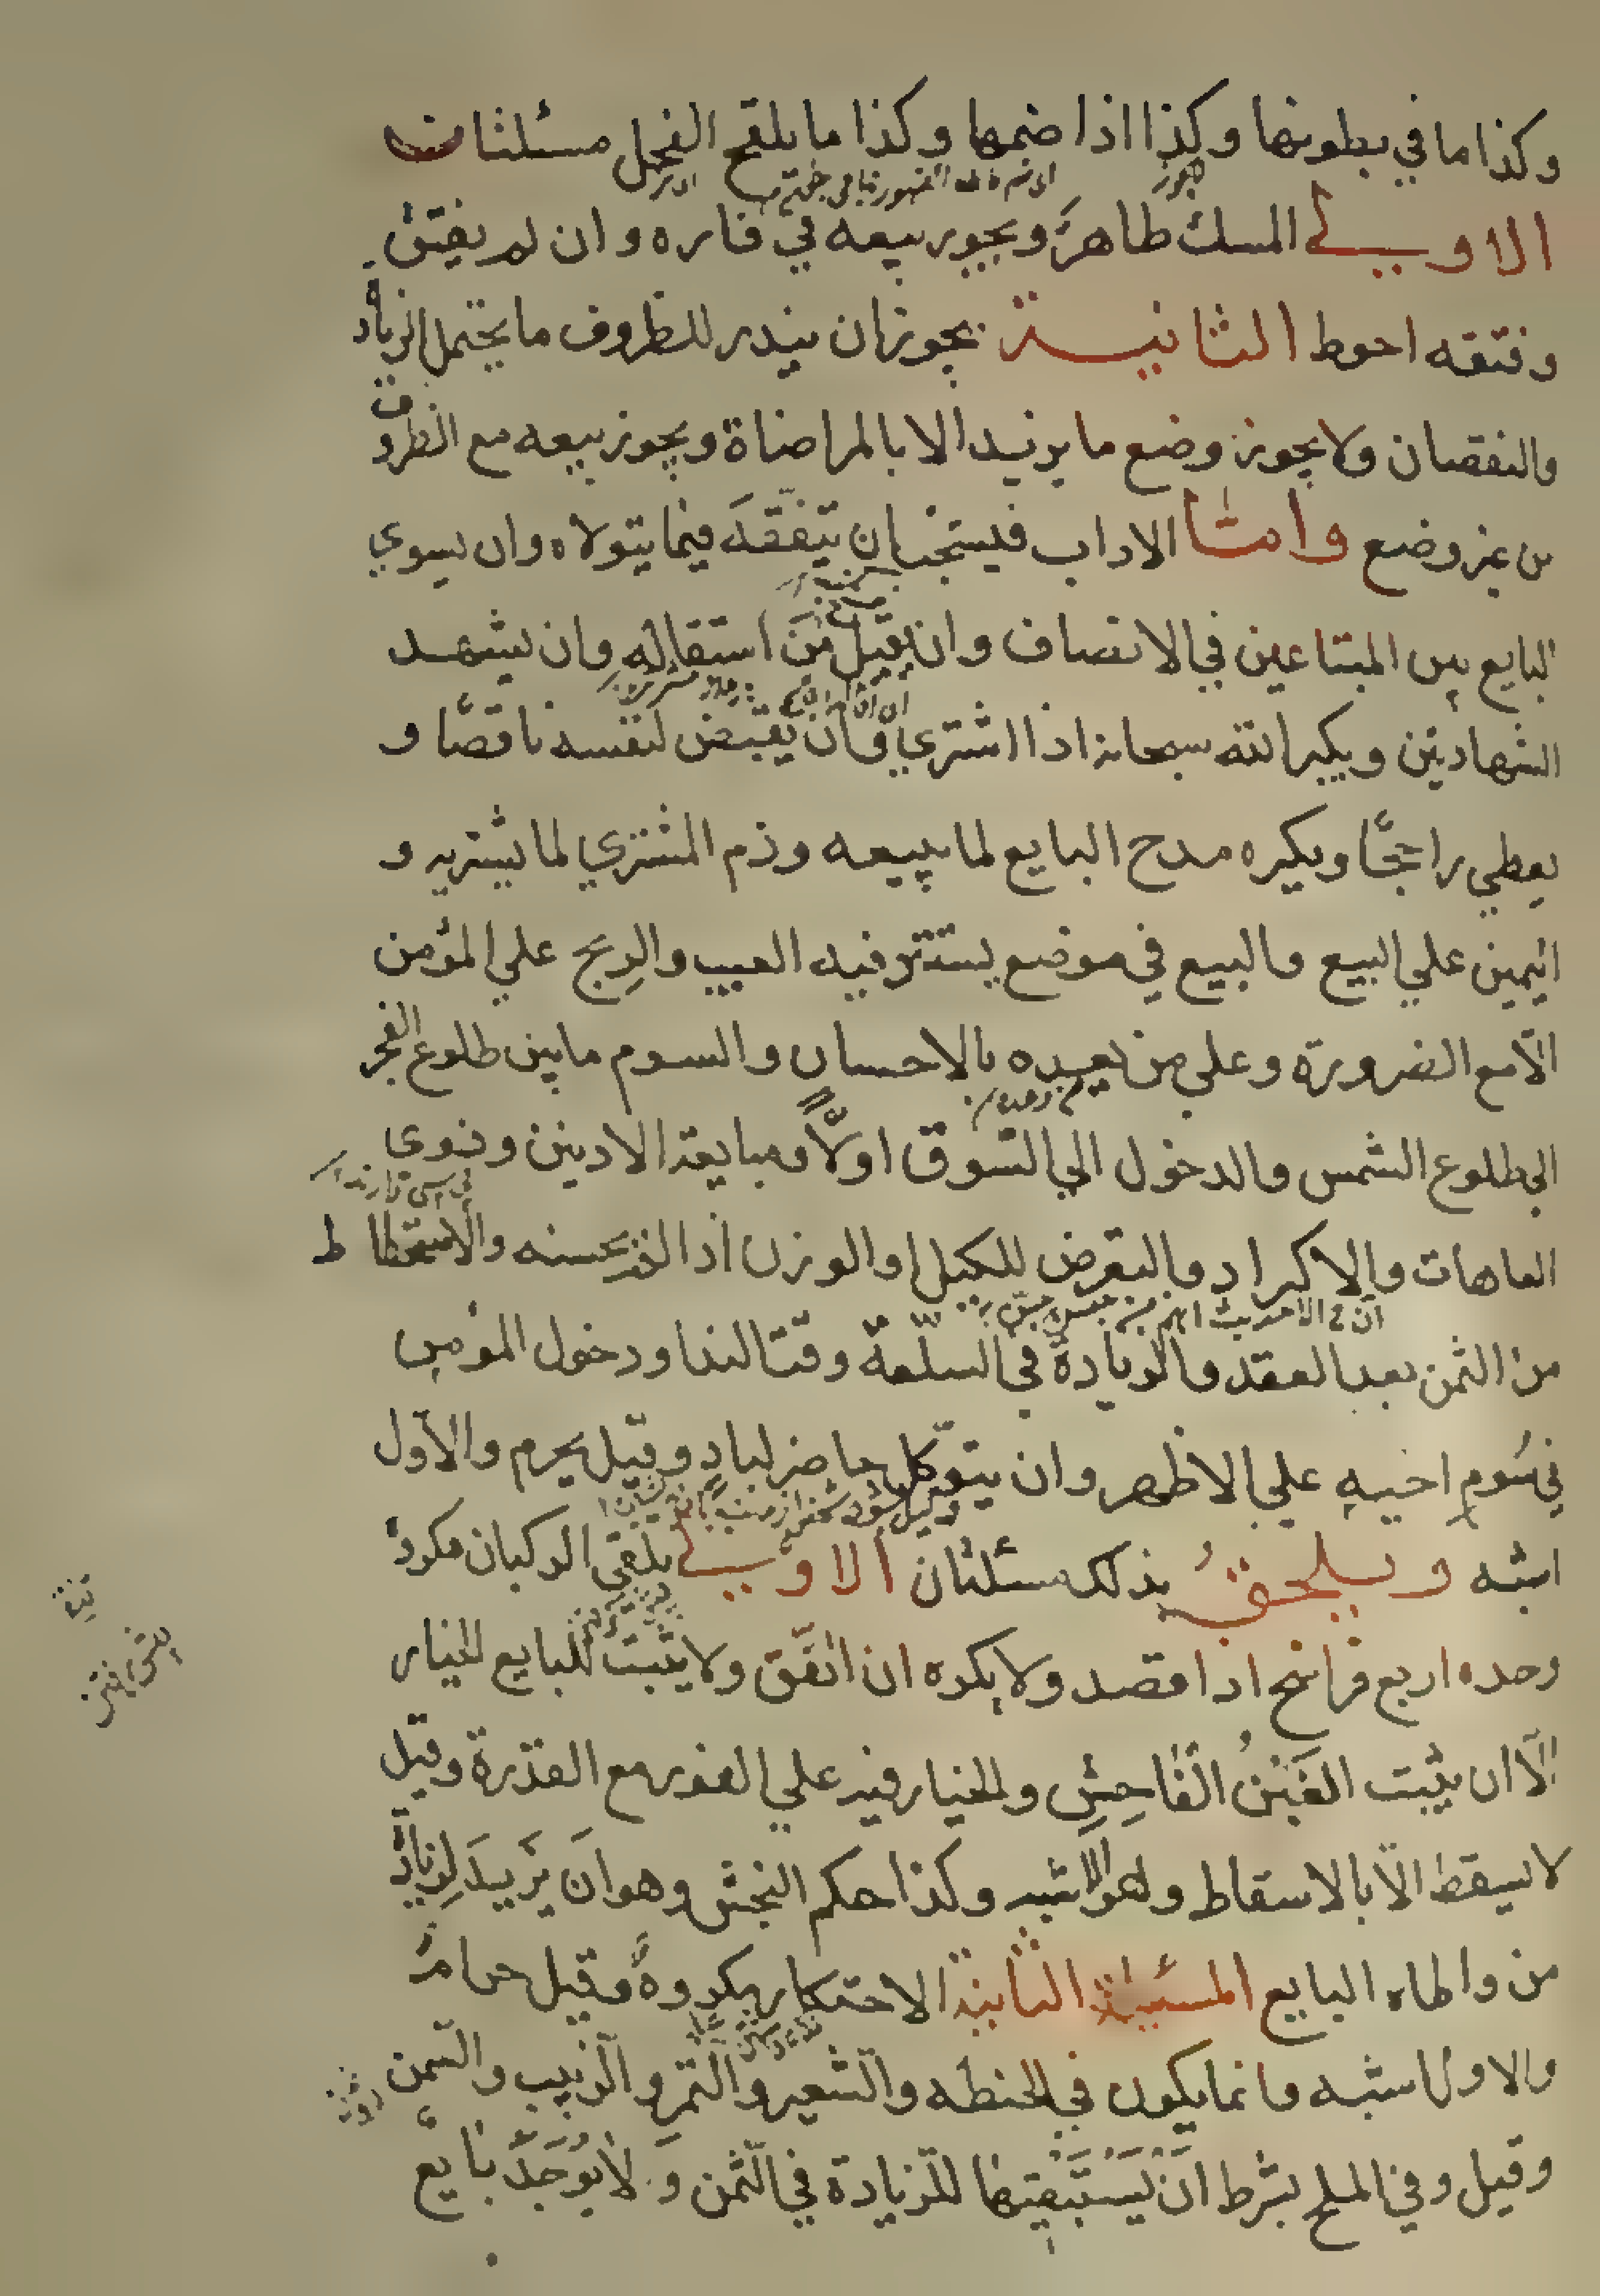 وكذا ما في بطونها وكذا اذا ضمهما وكذا ما يلقح الفحل مسئلتان
الاولى المسك طاهر ويجوز بيعه في فاره وان لم يفتق
وفتقه احوط الثانية يجوز ان يندر للظروف ما يحتمل الزيادة
والنقصان ولا يجوز وضع ما يزيد الا بالمراضاة ويجوز بيعه مع الظروف
من غير وضع وامّا الاداب فيستحب ان يتفقّه فيما يتولاه وان يسوي
البايع بين المبتاعين في الانصاف وان يقيل من استقاله وان يشهد
الشهادتين ويكبر الله سبحانه اذا اشتري وان يقبض لنفسه ناقصًا و
يعطي راجحًا ويكره مدح البايع لما يبيعه وذم المشتري لما يشتريه و
اليمين علي البيع والبيع في موضع يستتر فيه العيب والربح علي المؤمن
الّا مع الضرورة وعلي من يعده بالاحسان والسوم ما بين طلوع الفجر
الي طلوع الشمس والدخول الي السوق اولًا ومبايعة الادنين وذوى
العاهات والاكراد والتعرض للكيل او الوزن اذا لم يحسنه والاستحطاط
من الثمن بعد العقد والزيادة في السلعة وقت الندا ودخول المؤمن
في سوم اخيه علي الاظهر وان يتوكل حاضر لبادٍ وقيل يحرم والاول
اشبه ويلحق بذلك مسئلتان الاولى تلقى الركبان مكروه
وحده اربع فراسخ اذا قصد ولا يكره ان اتّفق ولا يثبت للبايع الخيار
الّا ان يثبت الغبن الفاحش والخيار فيه علي الفور مع القدرة وقيل
لا يسقط الّا بالاسقاط وهو الاشبه وكذا حكم النجش وهو ان يزيد لزيادة
من واطاه البايع المسئلة الثانية الاحتكار مكروه وقيل حرام
والاول اشبه وانما يكون في الحنطه والشعير والتمر والزبيب والسمن
وقيل وفي الملح بشرط ان يستبقيها للزيادة في الثمن و لا يوجد بايع